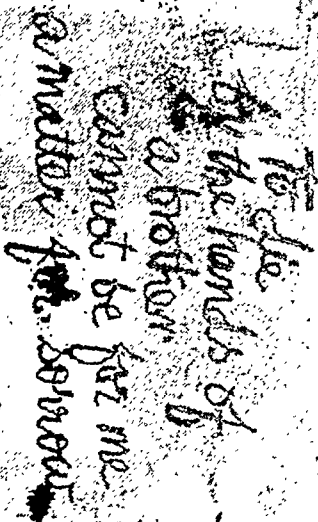 To die
By the hands of
a brother
cannot be for me
a matter for sorrow